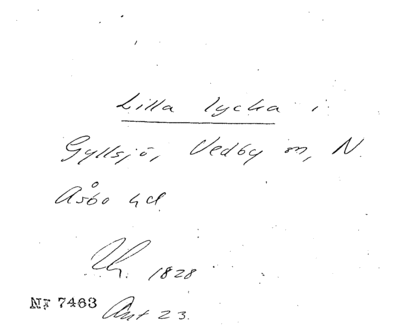 Lilla lycka i
Gyllsjö, Vedby sn, N.
Åsbo hd.
1828
NF 7463 Ant 23.